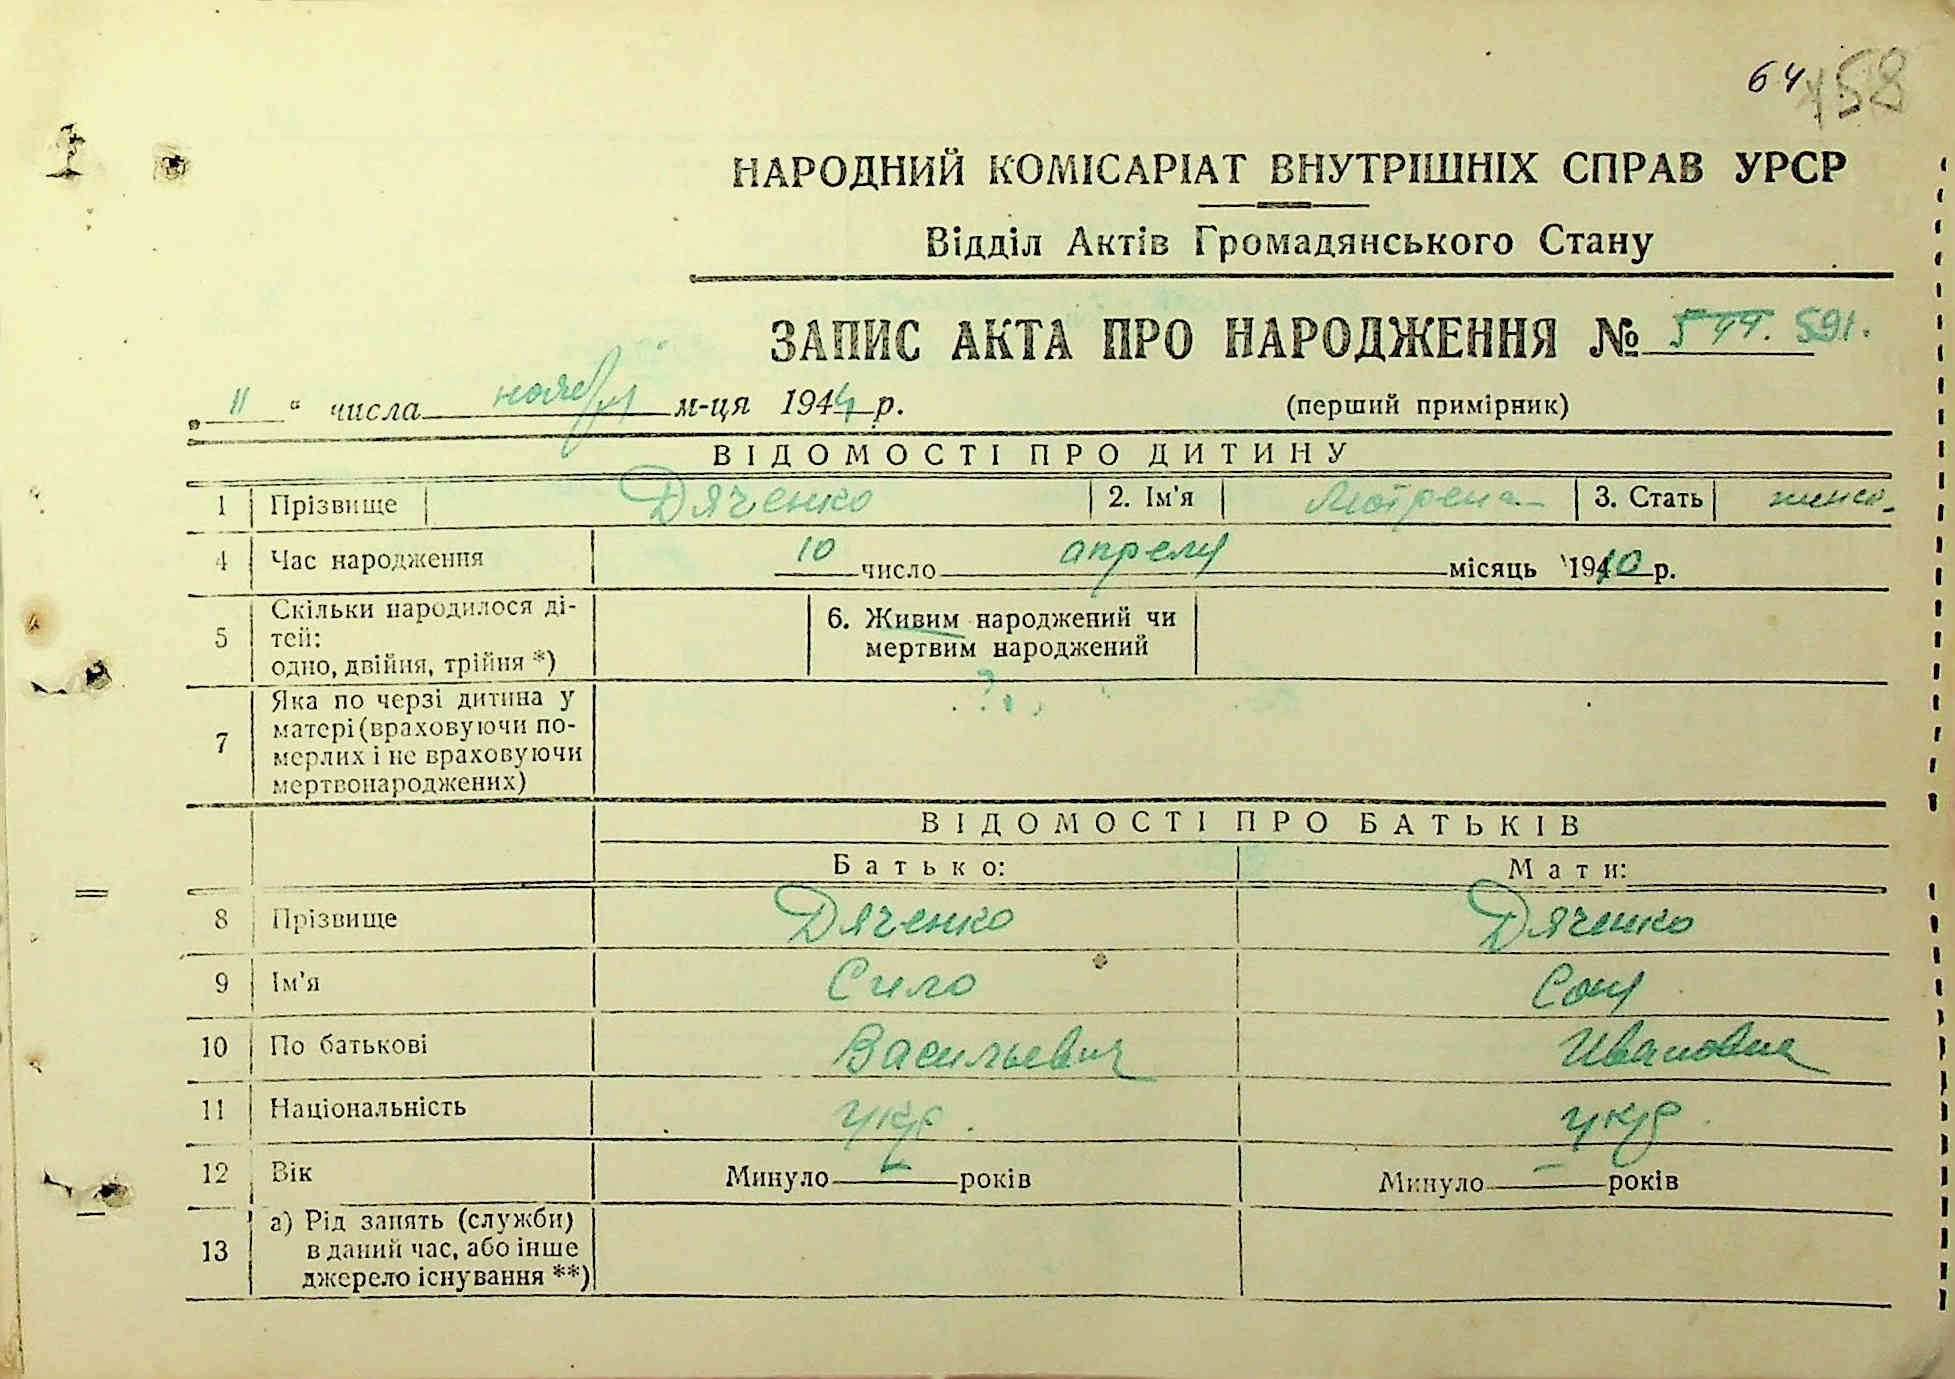 64 158
НАРОДНИЙ КОМІСАРІАТ ВНУТРІШНІХ СПРАВ УРСР
Відділ Актів Громадянського Стану
ЗАПИС АКТА ПРО НАРОДЖЕННЯ № 591.
„ 11 “ числа ноября м-ця 1944 р. (перший примірник)
ВІДОМОСТІ ПРО ДИТИНУ
1 Прізвище Дяченко 2. Ім'я Мотрена 3. Стать женск.
4 Час народження 10 число апреля місяць 1910 р.
5 Скільки народилося ді-
тей:
одно, двійня, трійня *) 6. Живим народжений чи
мертвим народжений
7 Яка по черзі дитина у
матері (враховуючи по-
мерлих і не враховуючи
мертвонароджених)
ВІДОМОСТІ ПРО БАТЬКІВ
Батько: Мати:
8 Прізвище Дяченко Дяченко
9 Ім'я Сило Соня
10 По батькові Васильевич Ивановна
11 Національність укр. укр.
12 Вік Минуло — років Минуло — років
13 а) Рід занять (служби)
в даний час, або інше
джерело існування **)